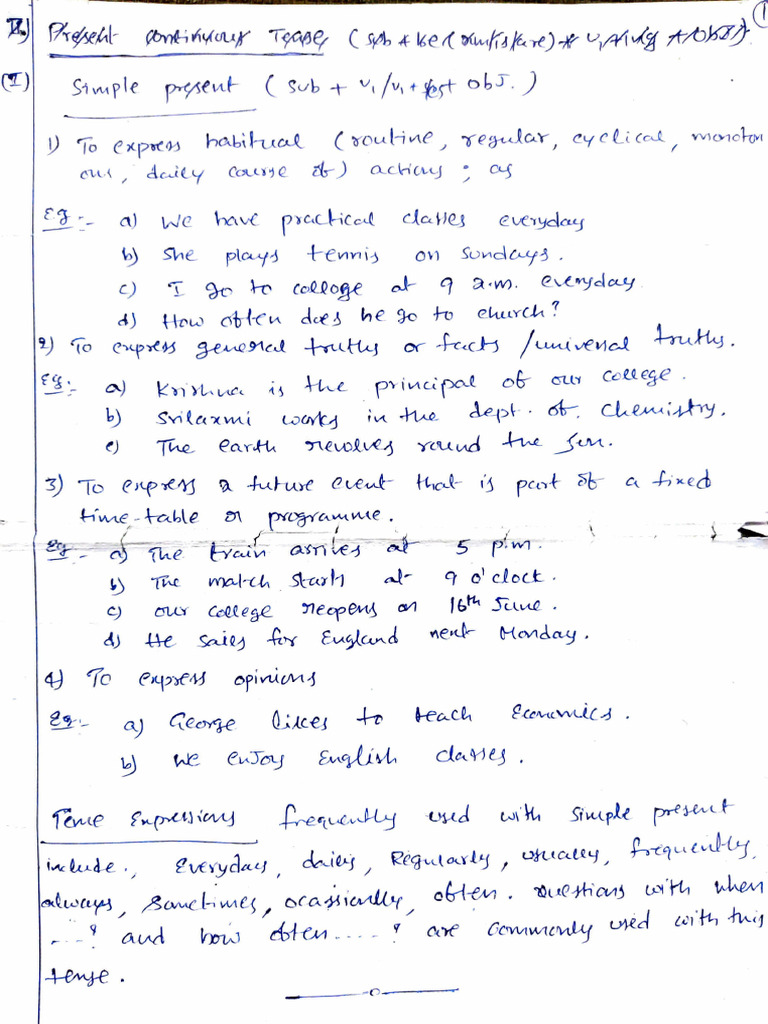 1
II) Present continuous Tense (sub + be (am/is/are) + v1+ing + obj).
(I) Simple present (sub + v1/v1+s/es+ obj.)
1) To express habitual (routine, regular, cyclical, monoton
ous, daily course of) actions; as
Eg:- a) We have practical classes everyday
b) She plays tennis on sundays.
c) I go to colloge at 9 a.m. everyday
d) How often does he go to church?
2) To express general truths or facts /universal truths.
Eg:- a) Krishna is the principal of our college.
b) Srilaxmi works in the dept. of. chemistry.
c) The earth revolves round the sun.
3) To express a future event that is part of a fixed
time-table or programme.
Eg:- a) The train arrives at 5 p.m.
b) The match starts at 9 o'clock.
c) our college reopens on 16th June.
d) He sails for England next Monday.
4) To express opinions
Eg:- a) George likes to teach Economics.
b) We enjoy English classes.
Time Expressions frequently used with simple present
include., Everyday, daily, Regularly, usually, frequently,
always, Sometimes, ocassionally, often. Questions with when
....? and how often.....? are commonly used with this
tense.